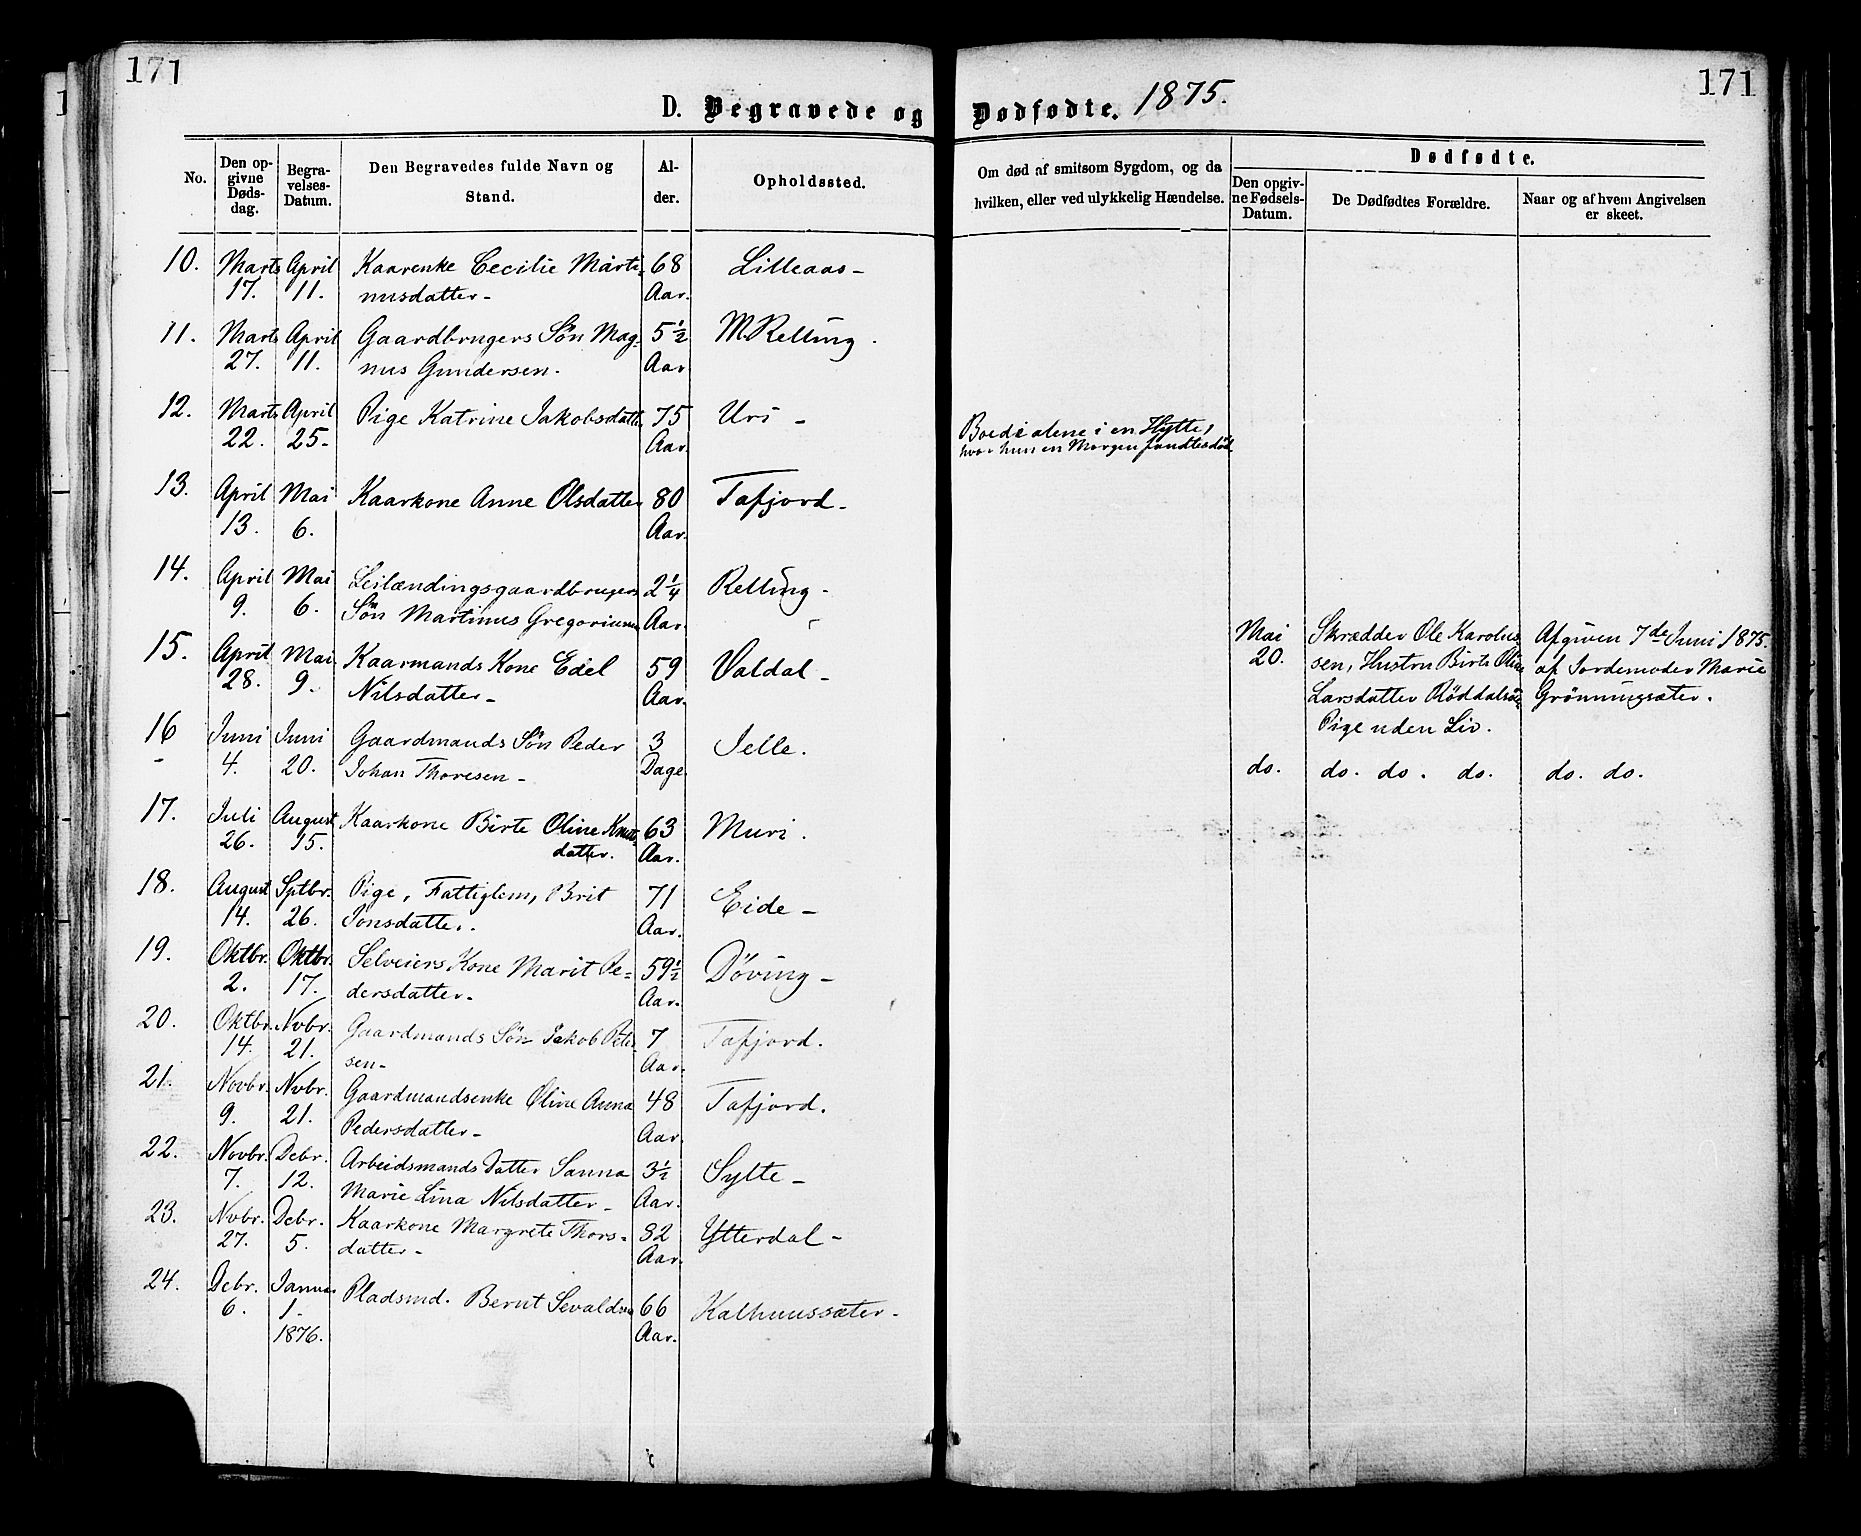 171
171
D. Begravede og Dødfødte. 1875.
No.
Den opgivne Dødsdag.
Begravelses-Datum.
Den Begravedes fulde Navn og Stand.
Alder.
Opholdssted.
Om død af smitsom Sygdom, og da hvilken, eller ved ulykkelig Hændelse.
Dødfødte.
Den opgivne Fødsels-Datum.
De Dødfødtes Forældre.
Naar og af hvem Angivelsen er skeet.
10. Marts April Kaarenke Cecilie Marti- 68 Lilleaas-
17. 11. nusdatter- Aar.
11. Marts April Gaardbrugers Søn Mag- 5 1/2 M. Relling.
27. 11. nus Gundersen. Aar
12. Marts April Pige Katrine Jakobsdatter 75 Uri -
22. 25- Aar.
Boede alene i en Hytte,
hvor hun en Morgen fandtes død.
13. April Mai Kaarkone Anne Olsdatter 80 Tafjord-
13. 6. Aar.
14. April Mai Leilændingsgaardbrugers 2 1/4 Relling-
9. 6. Søn Martinus Aar.
15. April Mai Kaarmands Kone Edel 59 Valdal-
28. 9. Nilsdatter- Aar.
Mai Skrædder Ole Karolus Afgiven 7de Juni 1875.
20. sen, Hustru Birte af Jordemoder Marie
Larsdatter Grönningsæter.
Pige uden Liv.
16 Juni Juni Gaardmands Søn Peder 3 Jelle.
- 4. 20. Johan Thoresen- Dage.
do. do. do. do. do. do.
17. Juli August Kaarkone Birte Oline Knuts- 63 Muri.
26. 15. datter. Aar.
18. August Sptbr. Pige, Fattiglem, Brit 71 Eide-
14. 26. Jonsdatter. Aar.
19. Oktbr. Oktbr. Selveiers Kone Marit Pe- 59 1/2 Döving-
2. 17. dersdatter- Aar.
20. Oktbr. Nvbr. Gaardmands Søn Jakob Peder- 7 Tafjord.
14. 21. sen- Aar.
21. Novbr. Nvbr. Gaardmandsenke Oline Anna 48 Tafjord.
9. 21. Pedersdatter- Aar.
22. Novbr. Debr. Arbeidsmands Datter Sanna 3 1/2 Sylte-
7. 12. Marie Lina Nilsdatter- Aar.
23. Nvbr. Debr. Kaarkone Margrete Thors- 82 Ytterdal-
27. 5. datter- Aar.
24. Debr. Januar Pladsmd. Bernt Sevaldsen 66 Kalhussæter-
6. 1- Aar.
1876.